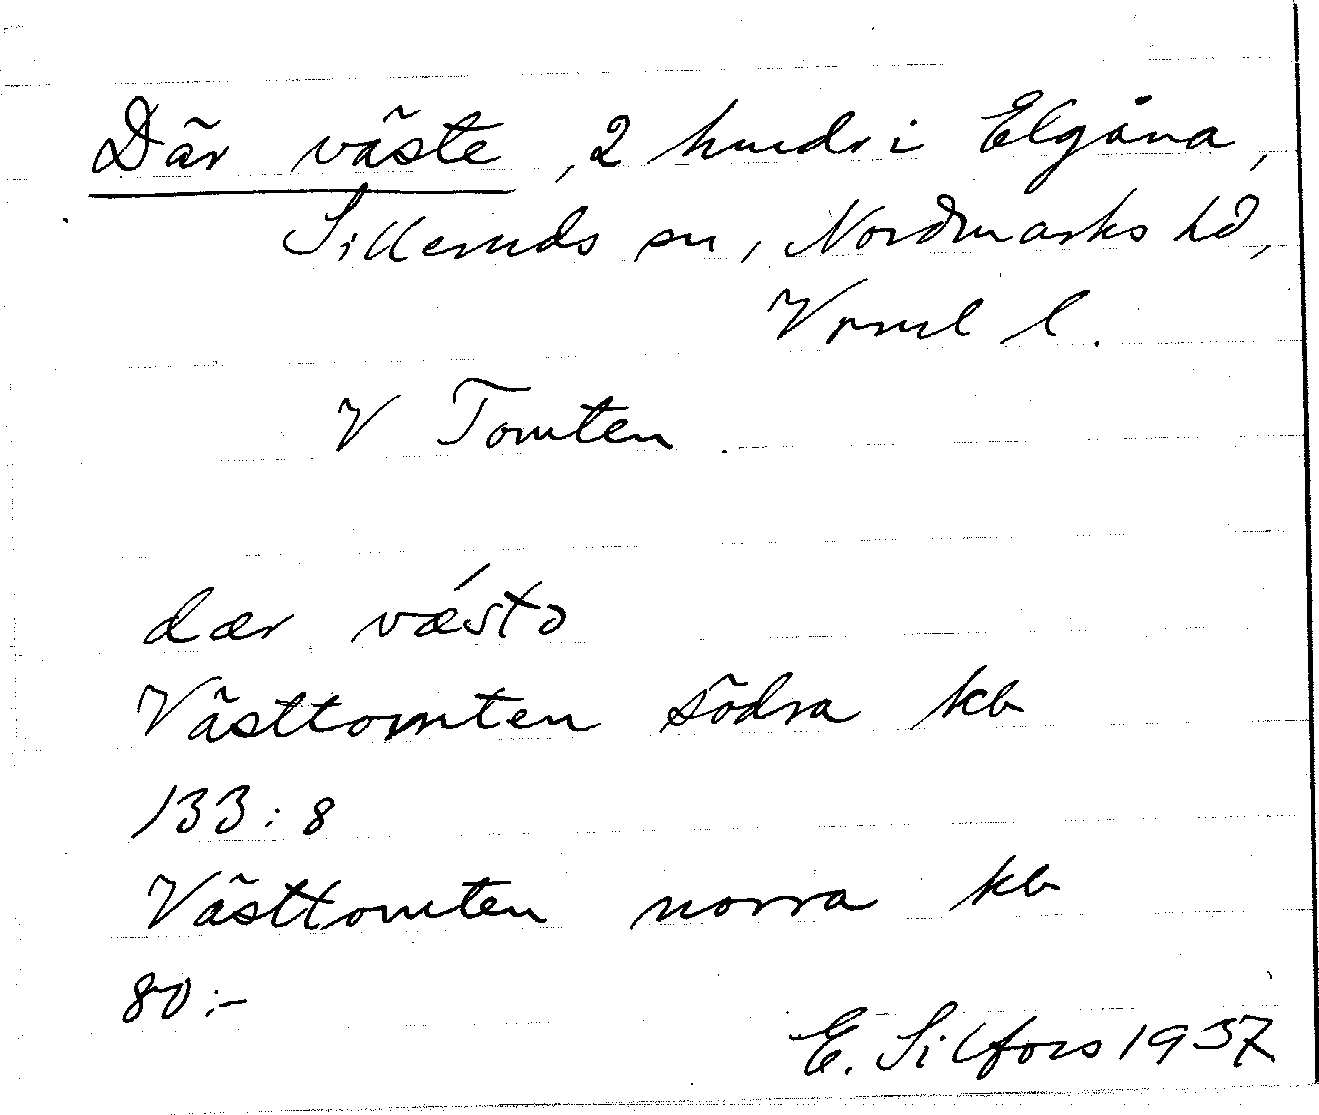 Där väste, 2 hmdr i Elgåna,
Silleruds sn, Nordmarks hd,
Vrml l.
V Tomten.
dær vǽstə
Västtomten södra kb
133:8
Västtomten norra kb
80:-
E. Silfors 1937